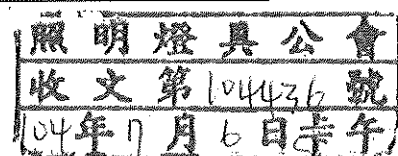 照明燈具公會
收文第104436號
104年7月6日午